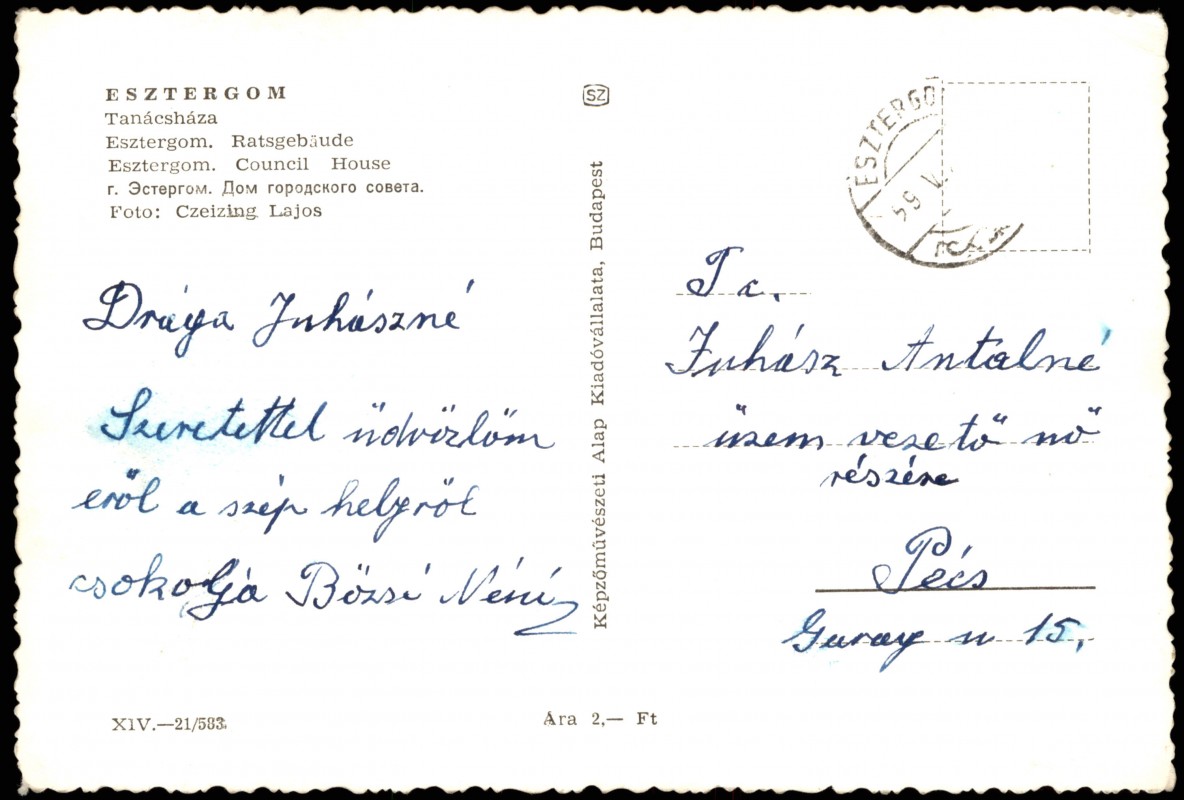 ESZTERGOM
Tanácsháza
Esztergom. Ratsgebäude
Esztergom. Council House
г. Эстергом. Дом городского совета.
Foto: Czeizing Lajos
SZ
ESZTERGO
59 V
Drága Juhászné
Szeretettel üdvözlöm
eről a szép helyről
csokolja Bözsi Néni
Képzőművészeti Alap Kiadóvállalata, Budapest
T c.
Juhász Antalné
üzem vezető nő
részére
Pécs
Garay u 15.
XIV.—21/583.
Ára 2,— Ft